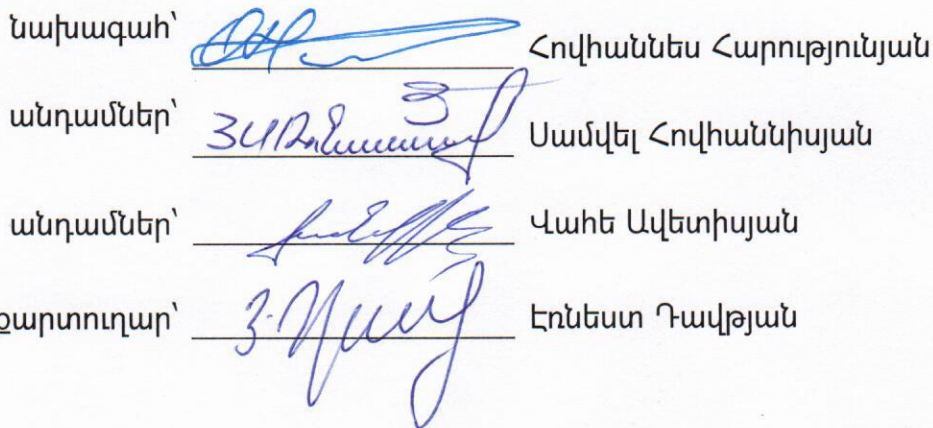 նախագահ՝ Հովհաննես Հարությունյան
անդամներ՝ Սամվել Հովհաննիսյան
անդամներ՝ Վահե Ավետիսյան
քարտուղար՝ Էռնեստ Դավթյան